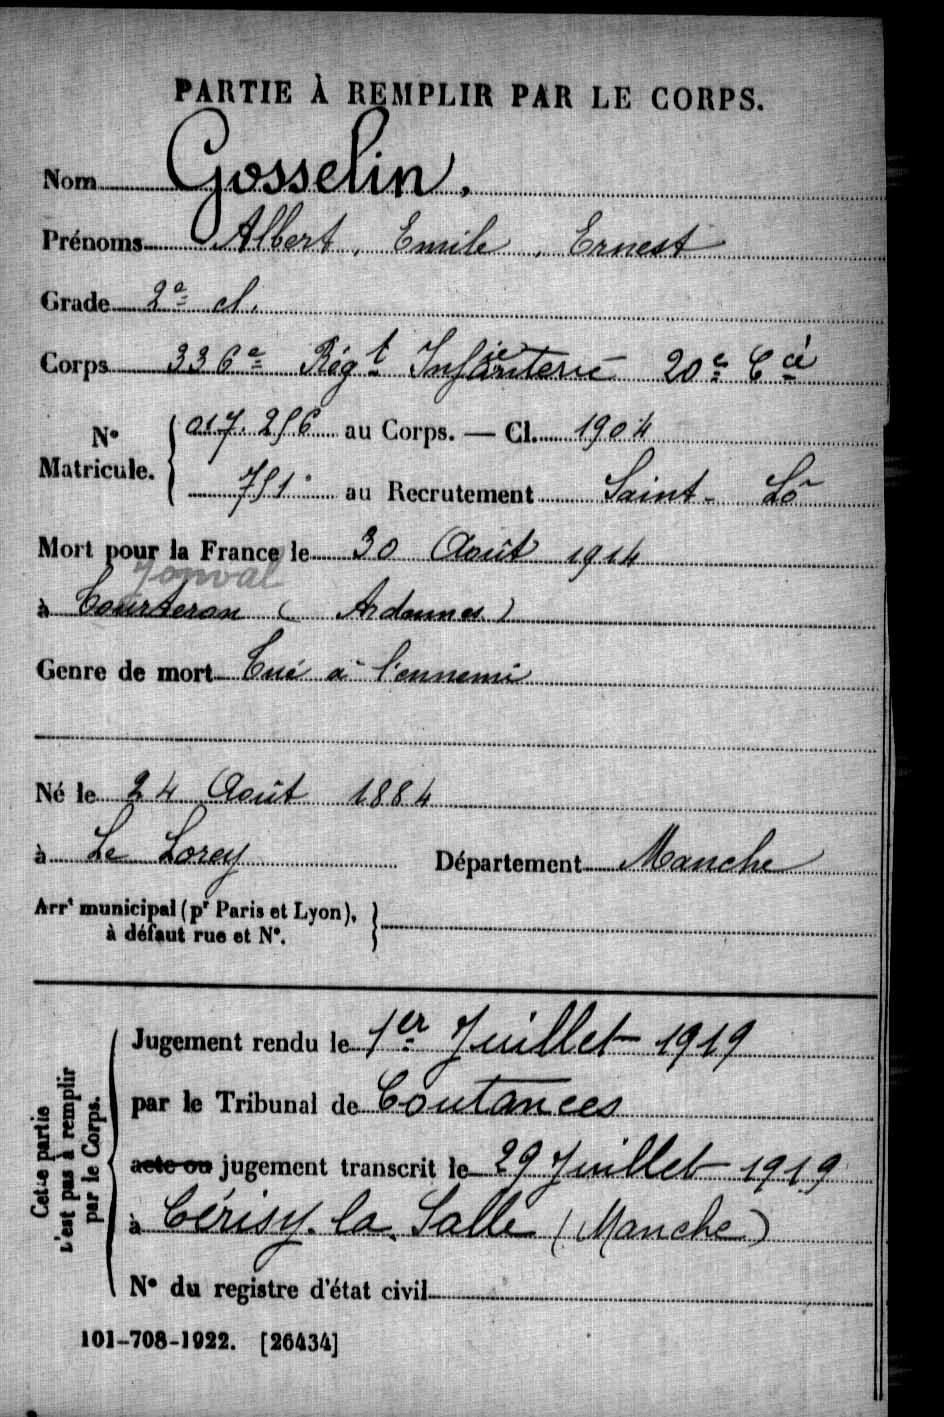 PARTIE À REMPLIR PAR LE CORPS.
Nom Gosselin,
Prénoms Albert, Emile, Ernest
Grade 2e cl.
Corps 336e Régt Infanterie 20e Cie
N° Matricule. 017.256 au Corps. — Cl. 1904
751 au Recrutement Saint-Lô
Mort pour la France le 30 Août 1914
Jonval
à (Ardennes)
Genre de mort Tué à l'ennemi
Né le 24 Août 1884
à Le Lorey Département Manche
Arrt municipal (pr Paris et Lyon),
à défaut rue et N°.
Cette partie n'est pas à remplir par le Corps.
Jugement rendu le 1er Juillet 1919
par le Tribunal de Coutances
acte ou jugement transcrit le 29 Juillet 1919
à Cérisy-la-Salle (Manche)
N° du registre d'état civil
101-708-1922. [26434]